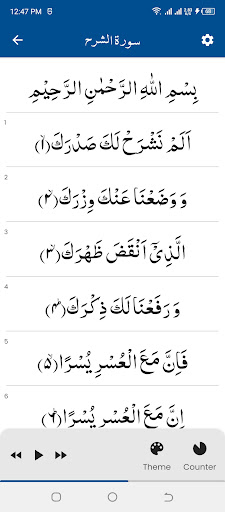 12:47 PM
سورة الشرح
بِسْمِ اللهِ الرَّحْمٰنِ الرَّحِيْمِ
1
اَلَمْ نَشْرَحْ لَكَ صَدْرَكَ ﴿۱﴾
2
وَ وَضَعْنَا عَنْكَ وِزْرَكَ ﴿۲﴾
3
الَّذِيْۤ اَنْقَضَ ظَهْرَكَ ﴿۳﴾
4
وَ رَفَعْنَا لَكَ ذِكْرَكَ ﴿۴﴾
5
فَاِنَّ مَعَ الْعُسْرِ يُسْرًا ﴿۵﴾
6
اِنَّ مَعَ الْعُسْرِ يُسْرًا ﴿۶﴾
Theme
Counter